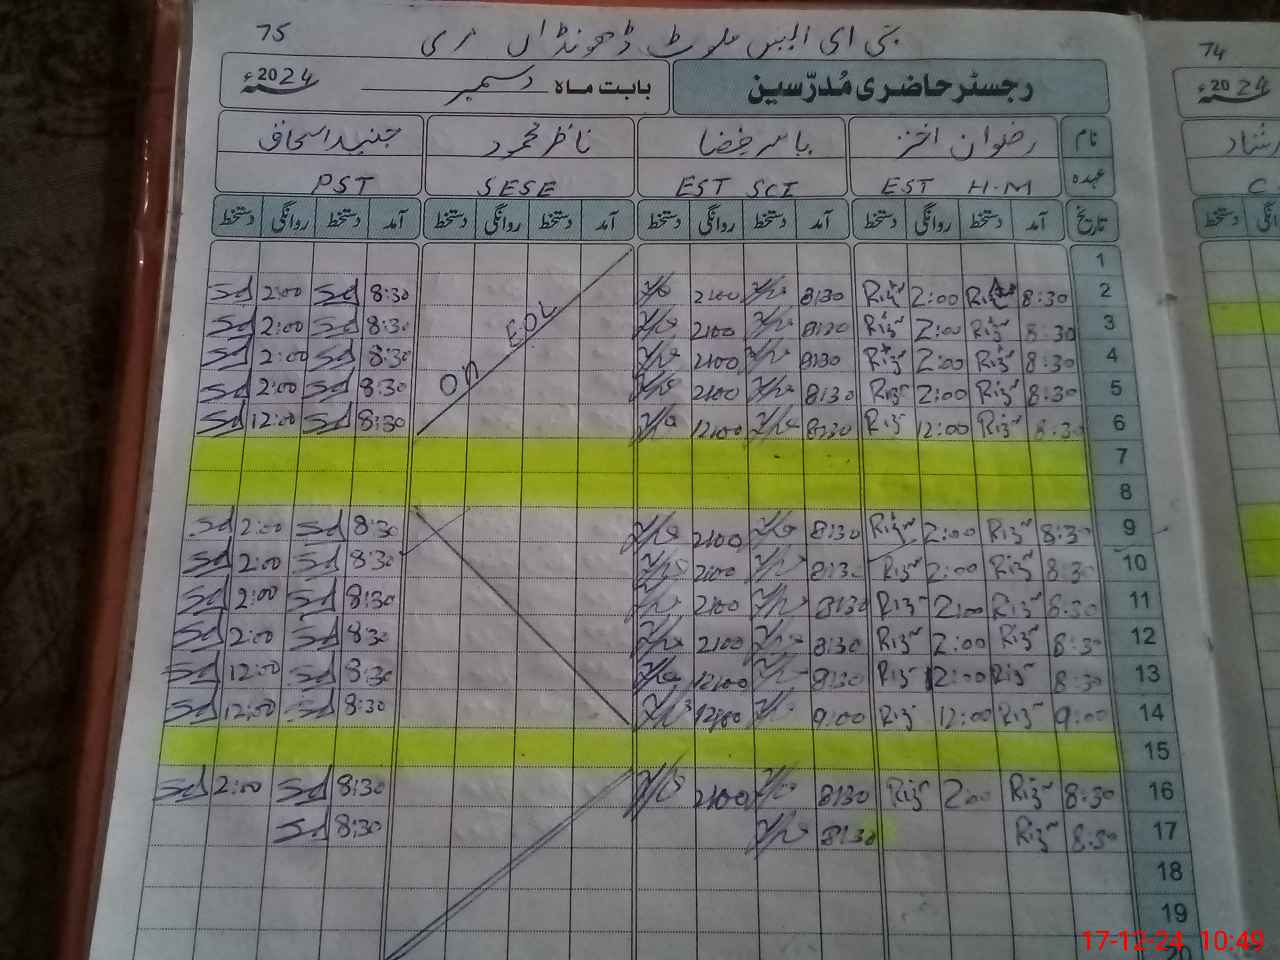 75
جی ای ایلیس ملوٹ ڈھونڈاں مری
74
رجسٹر حاضری مُدرّسین
بابت ماہ دسمبر 2024ء
2024ء
نام رضوان اختر یاسر رضا ناظر محمود جنید اسحاق
عہدہ EST H.M EST SCI SESE PST
تاریخ آمد دستخط روانگی دستخط آمد دستخط روانگی دستخط آمد دستخط روانگی دستخط آمد دستخط روانگی دستخط
1
2 8:30 Riz 2:00 Riz 8:30 2:00 8:30 Sd 2:00 Sd
3 8:30 Riz 2:00 Riz 8:30 2:00 8:30 Sd 2:00 Sd
4 8:30 Riz 2:00 Riz 8:30 2:00 8:30 Sd 2:00 Sd
5 8:30 Riz 2:00 Riz 8:30 2:00 8:30 Sd 2:00 Sd
On E.O.L
6 8:30 Riz 12:00 Riz 8:30 12:00 8:30 Sd 12:00 Sd
7
8
9 8:30 Riz 2:00 Riz 8:30 2:00 8:30 Sd 2:00 Sd
10 8:30 Riz 2:00 Riz 8:30 2:00 8:30 Sd 2:00 Sd
11 8:30 Riz 2:00 Riz 8:30 2:00 8:30 Sd 2:00 Sd
12 8:30 Riz 2:00 Riz 8:30 2:00 8:30 Sd 2:00 Sd
13 8:30 Riz 12:00 Riz 8:30 12:00 8:30 Sd 12:00 Sd
14 9:00 Riz 12:00 Riz 9:00 12:00 8:30 Sd 12:00 Sd
15
16 8:30 Riz 2:00 Riz 8:30 2:00 8:30 Sd 2:00 Sd
17 8:30 Riz 8:30 8:30 Sd
18
19
20
17-12-24 10:49